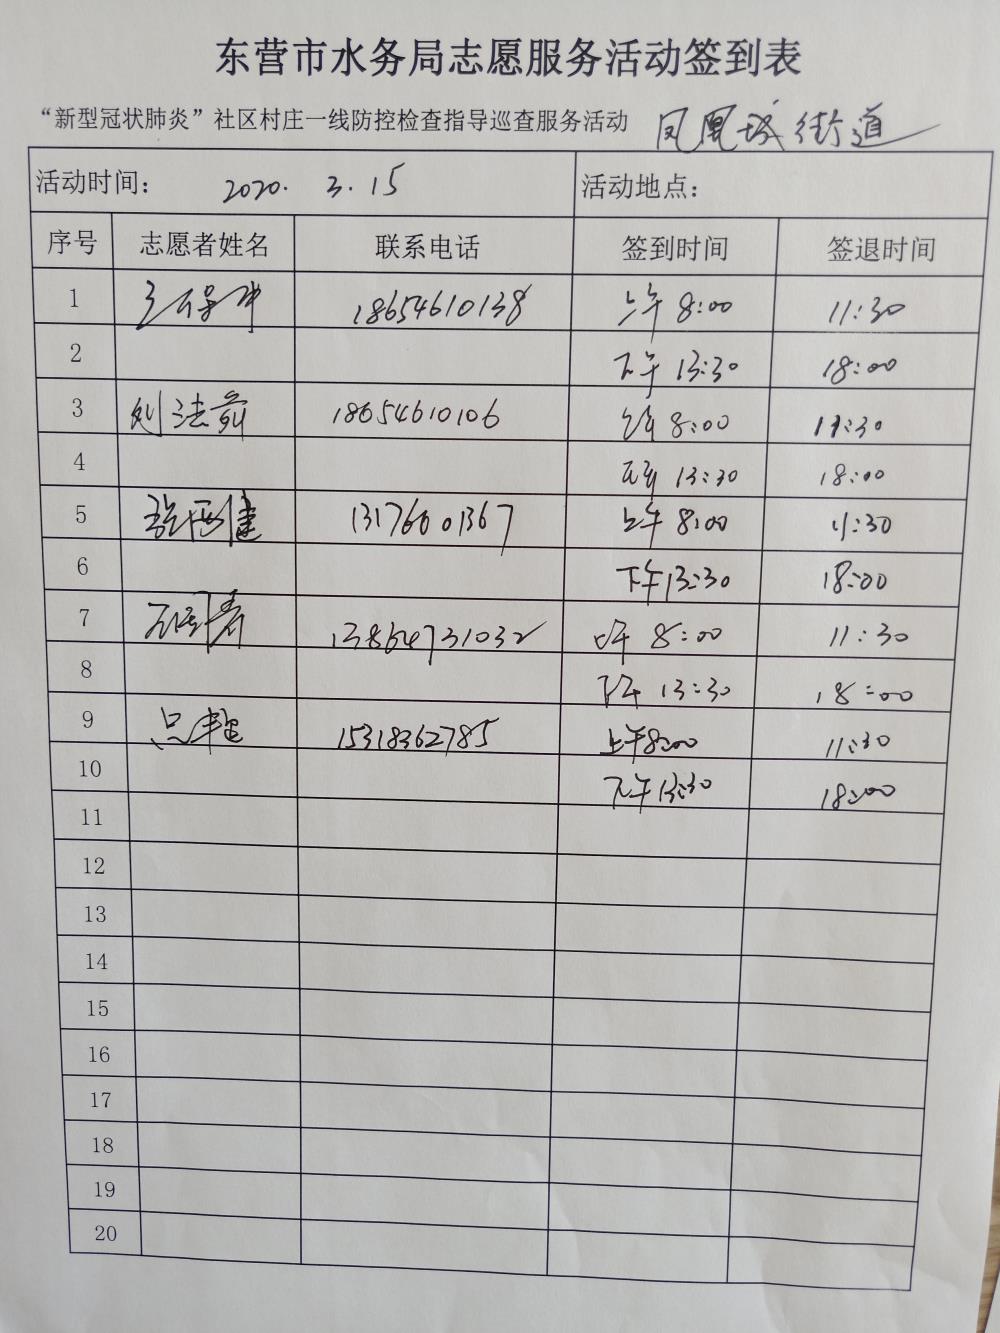 东营市水务局志愿服务活动签到表
“新型冠状肺炎”社区村庄一线防控检查指导巡查服务活动 凤凰城街道
活动时间： 2020. 3. 15 活动地点：
序号 志愿者姓名 联系电话 签到时间 签退时间
1 18654610138 上午 8:00 11:30
2 下午 13:30 18:00
3 刘法前 18654610106 上午 8:00 11:30
4 下午 13:30 18:00
5 13176601367 上午 8:00 11:30
6 下午 13:30 18:00
7 13864731032 上午 8:00 11:30
8 下午 13:30 18:00
9 15318362785 上午 8:00 11:30
10 下午 13:30 18:00
11
12
13
14
15
16
17
18
19
20